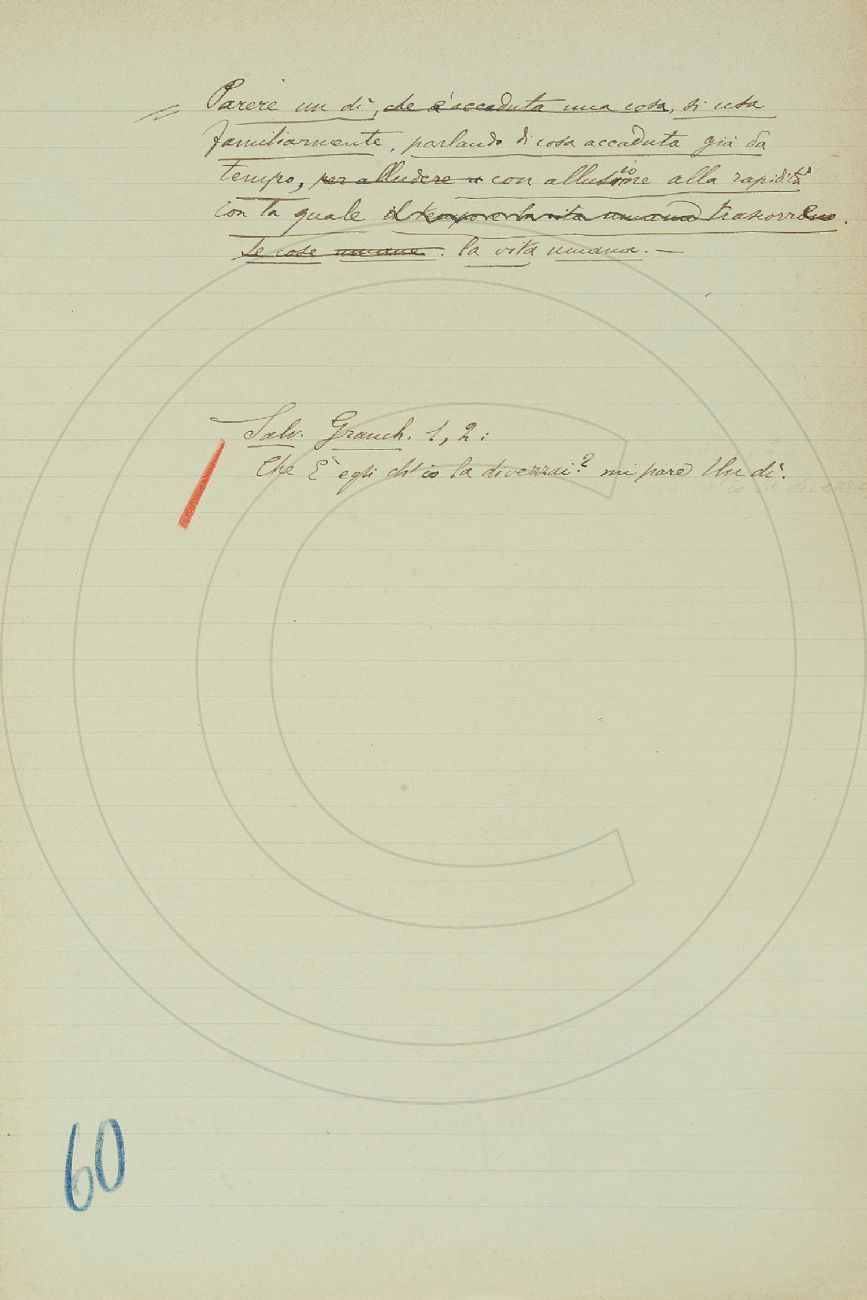 Parere un dì, che è accaduta una cosa, si usa
familiarmente, parlando di cosa accaduta già da
tempo, per alludere a con allusione alla rapidità
con la quale il tempo e la vita umana trascorrono.
le cose umane. la vita umana. —
— Salv. Granch. 1, 2:
Che È egli ch'io la divezzai? mi pare Un dì.
60